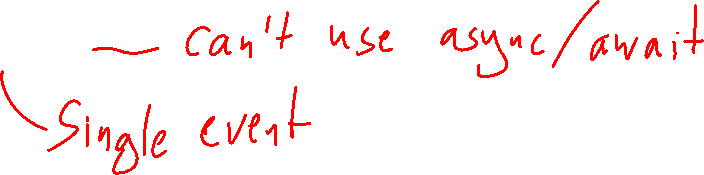 — can't use async/await
Single event